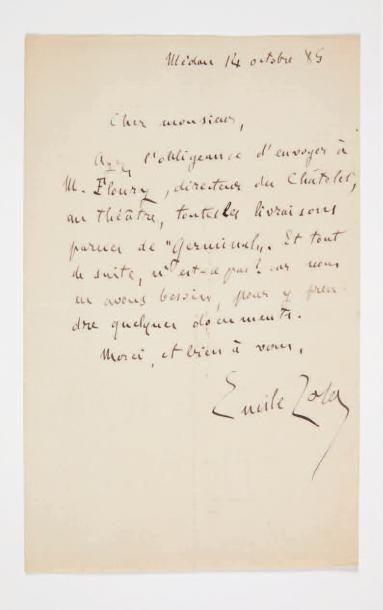 Médan 14 octobre 85
Cher monsieur,
Ayez l'obligeance d'envoyer à
M. Floury, directeur du Châtelet,
au théâtre, toutes les livraisons
parues de "Germinal". Et tout
de suite, n'est-ce pas? car nous
en avons besoin, pour y pren-
dre quelques documents.
Merci, et bien à vous,
Emile Zola